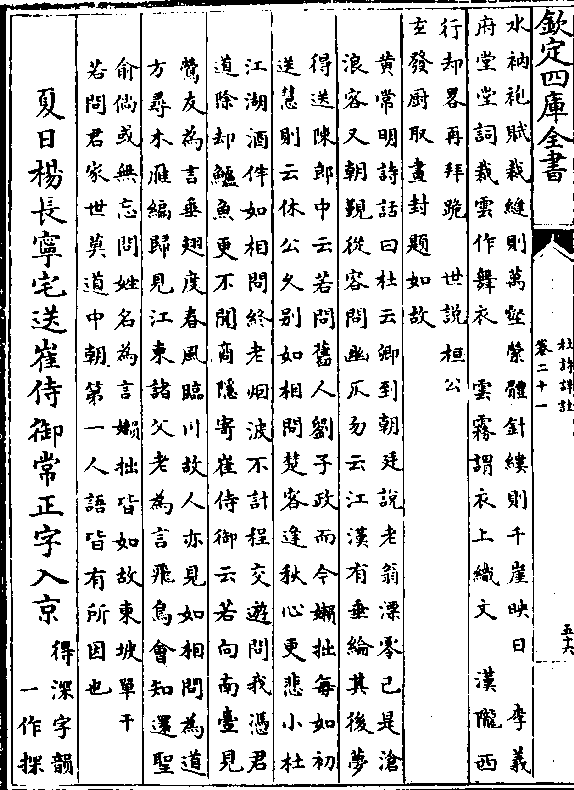 欽定四庫全書
杜詩詳註
卷二十一
五十六
水衲袍賦裁縫則萬壑縈體針縷則千崖映日　李義
府堂堂詞裁雲作舞衣　雲霧謂衣上織文　漢隴西
行却畧再拜跪　世說桓公
玄發厨取畫封題如故
黄常明詩話曰杜云卿到朝廷說老翁漂零已是滄
浪客又朝覲從容問幽仄勿云江漢有垂綸其後夢
得送陳郎中云若問舊人劉子政而今嬾拙每如初
送慧則云休公久别如相問楚客逢秋心更悲小杜
江湖酒伴如相問終老烟波不計程交遊問我憑君
道除却鱸魚更不聞商隱寄崔侍御云若向南臺見
鶯友為言垂翅度春風臨川故人亦見如相問為道
方尋木雁編歸見江東諸父老為言飛鳥會知還聖
俞倘或無忘問姓名為言嬾拙皆如故東坡單于
若問君家世莫道中朝第一人語皆有所因也
夏日楊長寧宅送崔侍御常正字入京
得深字韻
一作探